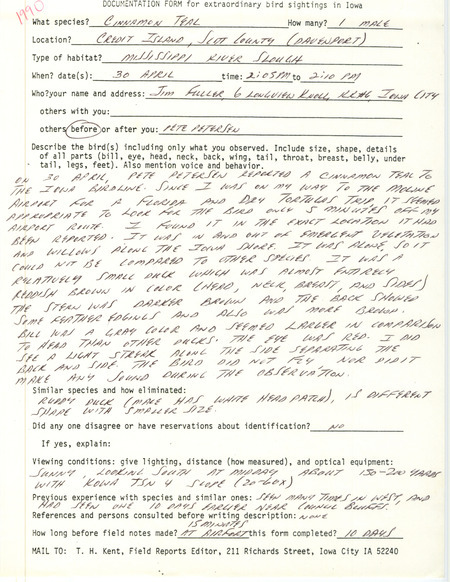 1990
DOCUMENTATION FORM for extraordinary bird sightings in Iowa
What species? CINNAMON TEAL How many? 1 MALE
Location? CREDIT ISLAND, SCOTT COUNTY (DAVENPORT)
Type of habitat? MISSISSIPPI RIVER SLOUGH
When? date(s): 30 APRIL time: 2:05 PM to 2:10 PM
Who?your name and address: JIM FULLER 6 LONGVIEW KNOLL, RR#6, IOWA CITY
others with you:
others before or after you: PETE PETERSEN
Describe the bird(s) including only what you observed. Include size, shape, details
of all parts (bill, eye, head, neck, back, wing, tail, throat, breast, belly, under
tail, legs, feet). Also mention voice and behavior.
ON 30 APRIL, PETE PETERSEN REPORTED A CINNAMON TEAL TO
THE IOWA BIRDLINE. SINCE I WAS ON MY WAY TO THE MOLINE
AIRPORT FOR A FLORIDA AND DRY TORTUGAS TRIP, IT SEEMED
APPROPRIATE TO LOOK FOR THE BIRD ONLY 5 MINUTES OFF MY
AIRPORT ROUTE. I FOUND IT IN THE EXACT LOCATION IT HAD
BEEN REPORTED. IT WAS IN AND OUT OF EMERGENT VEGETATION
AND WILLOWS ALONG THE IOWA SHORE. IT WAS ALONE, SO IT
COULD NOT BE COMPARED TO OTHER SPECIES. IT WAS A
RELATIVELY SMALL DUCK WHICH WAS ALMOST ENTIRELY
REDDISH BROWN IN COLOR (HEAD, NECK, BREAST, AND SIDES)
THE STERN WAS DARKER BROWN AND THE BACK SHOWED
SOME FEATHER EDGINGS AND ALSO WAS MORE BROWN.
BILL WAS A GRAY COLOR AND SEEMED LARGER IN COMPARISON
TO HEAD THAN OTHER DUCKS. THE EYE WAS RED. I DID
SEE A LIGHT STREAK ALONG THE SIDE SEPARATING THE
BACK AND SIDE. THE BIRD DID NOT FLY NOR DID IT
MAKE ANY SOUND DURING THE OBSERVATION.
Similar species and how eliminated:
RUDDY DUCK (MALE HAS WHITE HEAD PATCH), IS DIFFERENT
SHAPE WITH SMALLER SIZE.
Did any one disagree or have reservations about identification? NO
If yes, explain:
Viewing conditions: give lighting, distance (how measured), and optical equipment:
SUNNY, LOOKING SOUTH AT MIDDAY ABOUT 150-200 YARDS
WITH KOWA TSN 4 SCOPE (20-60X)
Previous experience with species and similar ones: SEEN MANY TIMES IN WEST, AND
HAD SEEN ONE 10 DAYS EARLIER NEAR COUNCIL BLUFFS.
References and persons consulted before writing description: NONE
15 MINUTES
How long before field notes made? AT AIRPORT this form completed? 10 DAYS
MAIL TO: T. H. Kent, Field Reports Editor, 211 Richards Street, Iowa City IA 52240